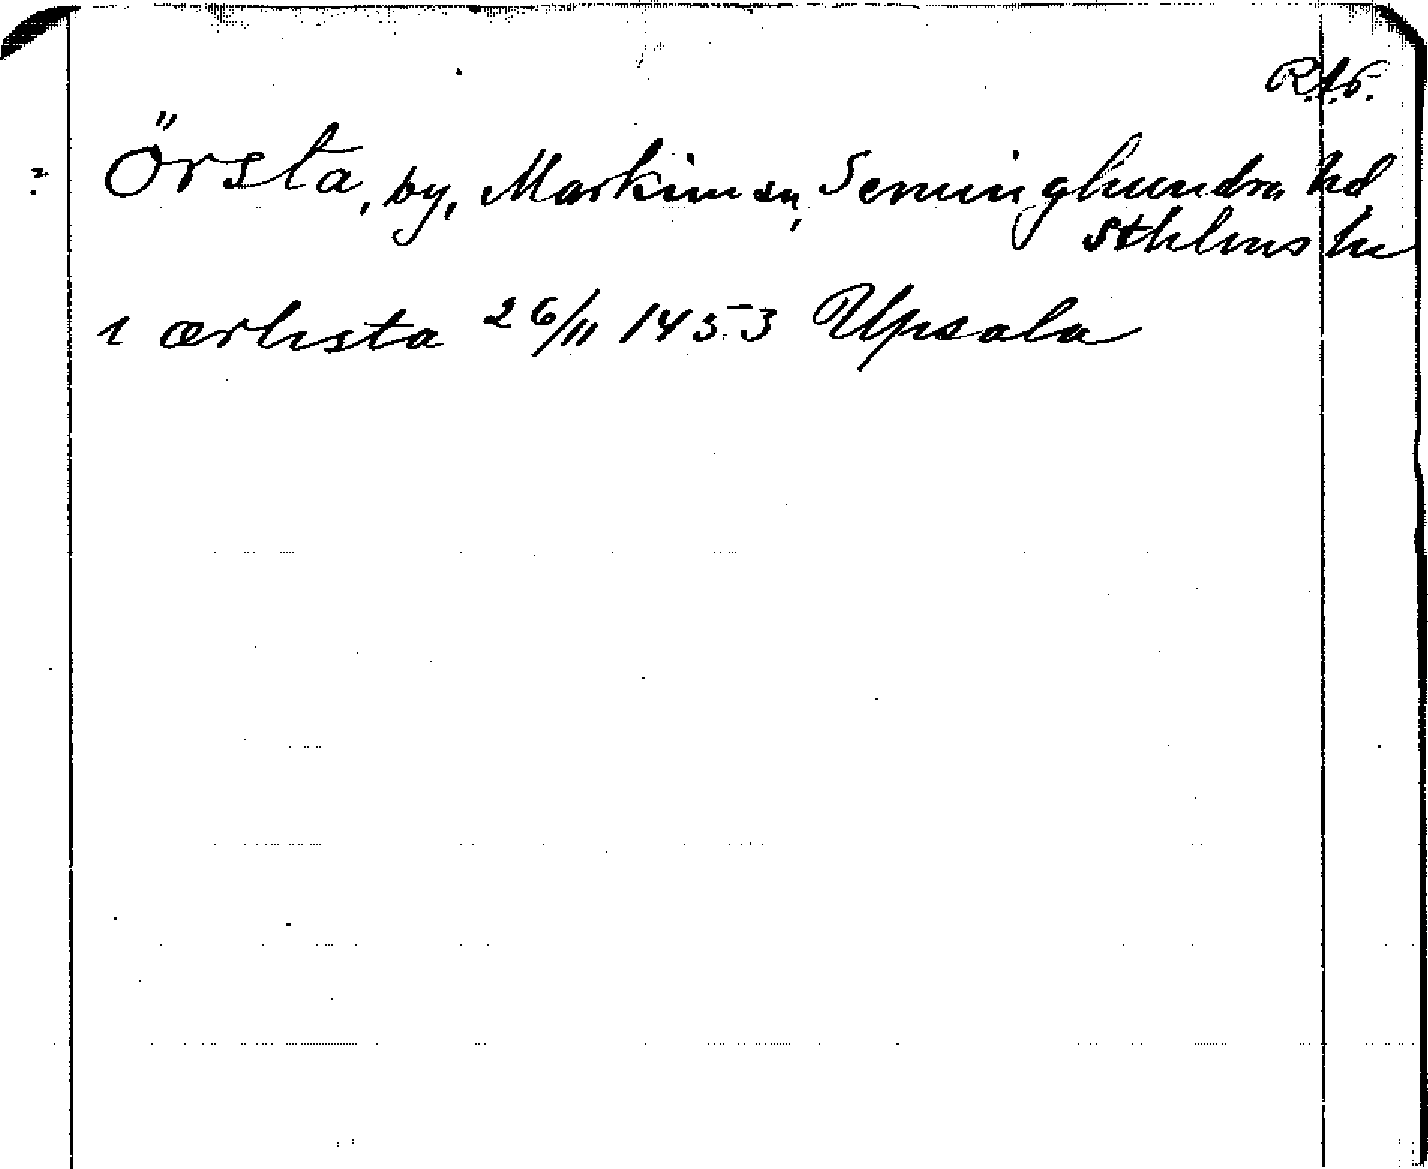 R.A.P.
? Örsta, by, Markim sn, Seminghundra hd
Sthlms ln
i ærlista 26/11 1453 Upsala